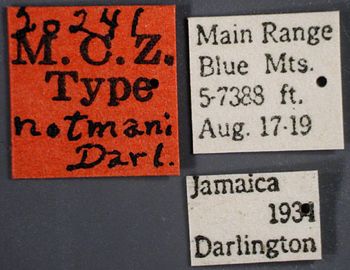 20241
M.C.Z.
Type
notmani
Darl.
Main Range
Blue Mts.
5-7388 ft.
Aug. 17-19
Jamaica
1934
Darlington